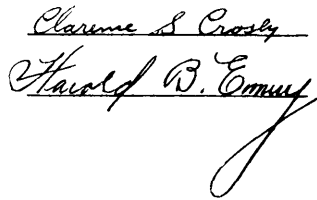 Clarence S Crosby
Harold B. Emery